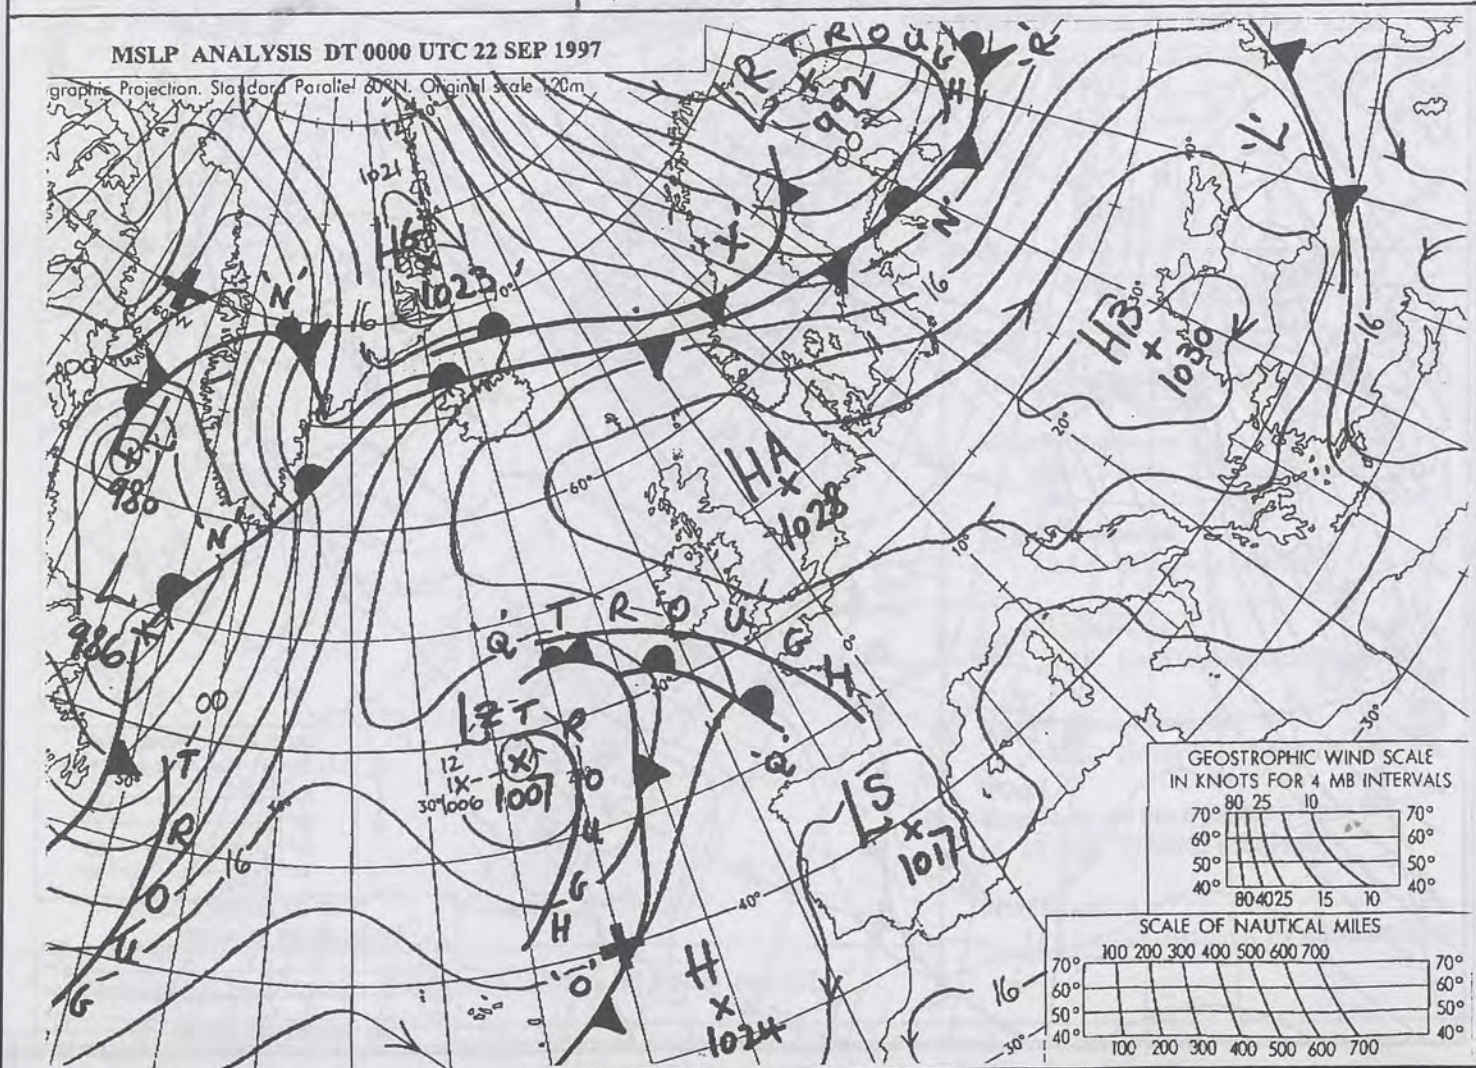 MSLP ANALYSIS DT 0000 UTC 22 SEP 1997
graphic Projection. Standard Parallel 60°N. Original scale 1:20m
L R T R O U G H
992
'R'
'L'
12
1021
HG
1023
'X'
'N'
16
16
16
'N'
HB
1030
00
980
HA
1028
N
60°
20°
10°
L
986
00
'Q' T R O U G H
0°
LZ T R O U G H
12
1X
1006
1007
'Q'
30°
30°
50°
T R O U G H
16
40°
LS
1017
'O'
H
1024
16
30°
GEOSTROPHIC WIND SCALE
IN KNOTS FOR 4 MB INTERVALS
80 25 10
70° 70°
60° 60°
50° 50°
40° 40°
80 40 25 15 10
SCALE OF NAUTICAL MILES
100 200 300 400 500 600 700
70° 70°
60° 60°
50° 50°
40° 40°
100 200 300 400 500 600 700